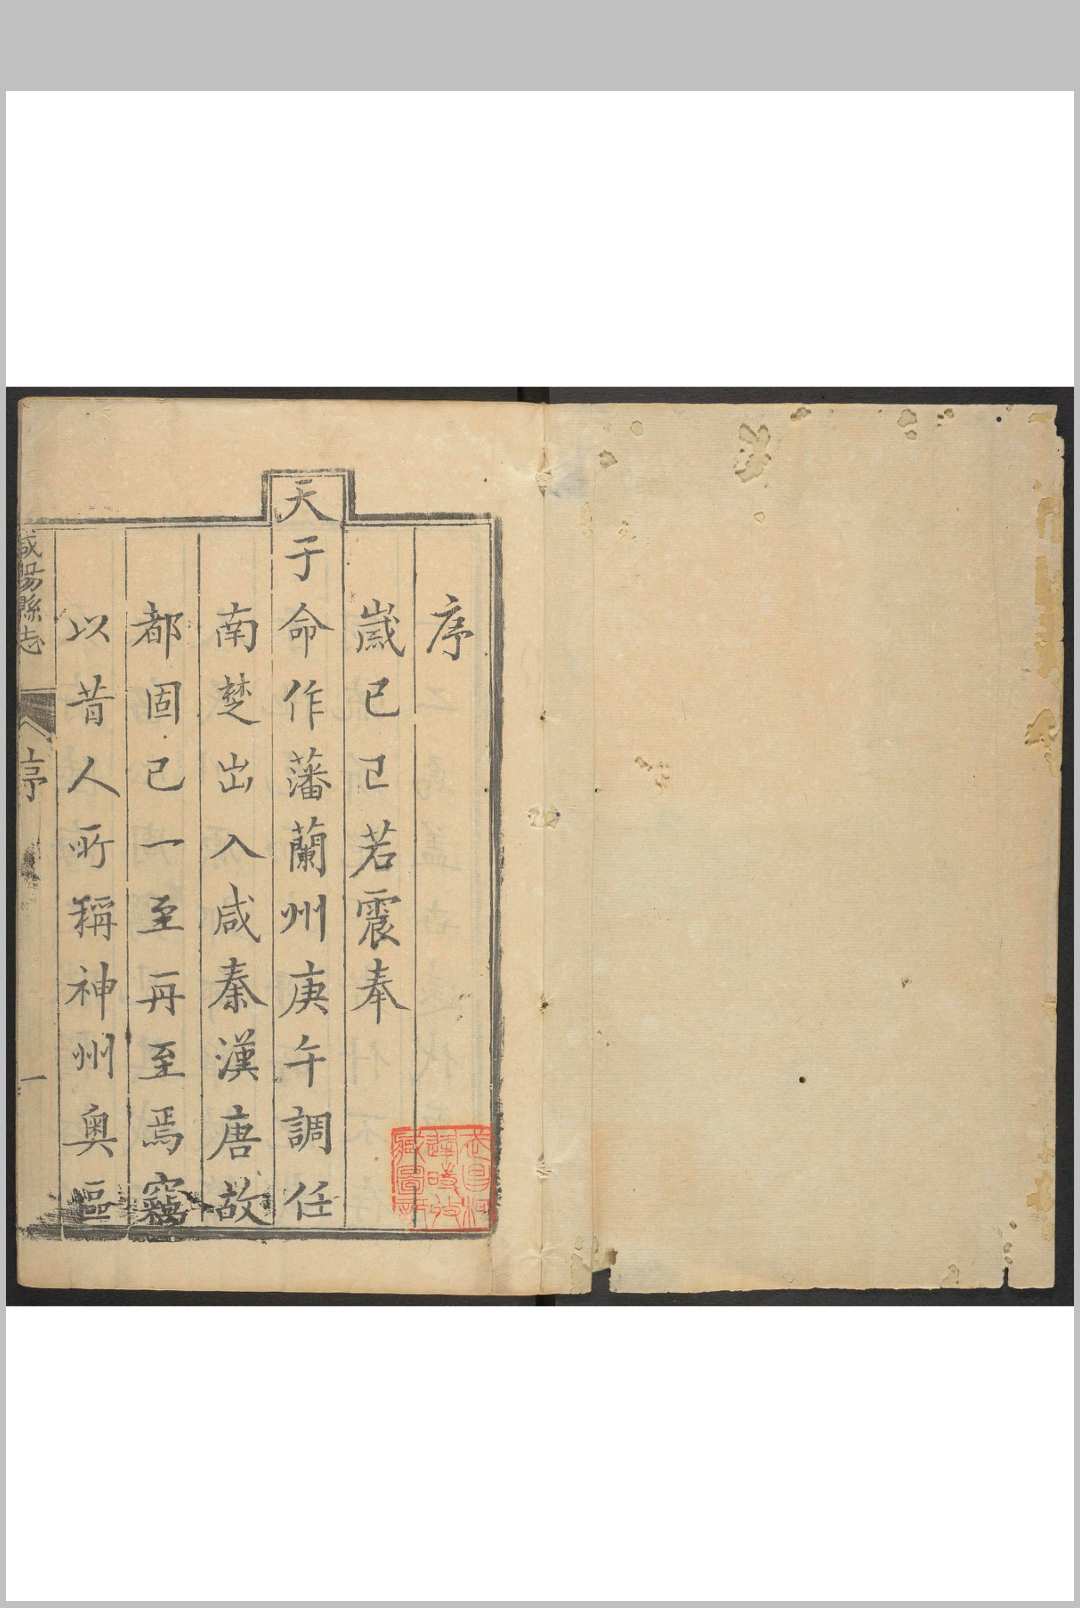 序
歲已巳若震奉
天子命作藩蘭州庚午調任
南楚出入咸秦漢唐故
都固已一至再至焉竊
以昔人所稱神州奥區
咸陽縣志
序
一